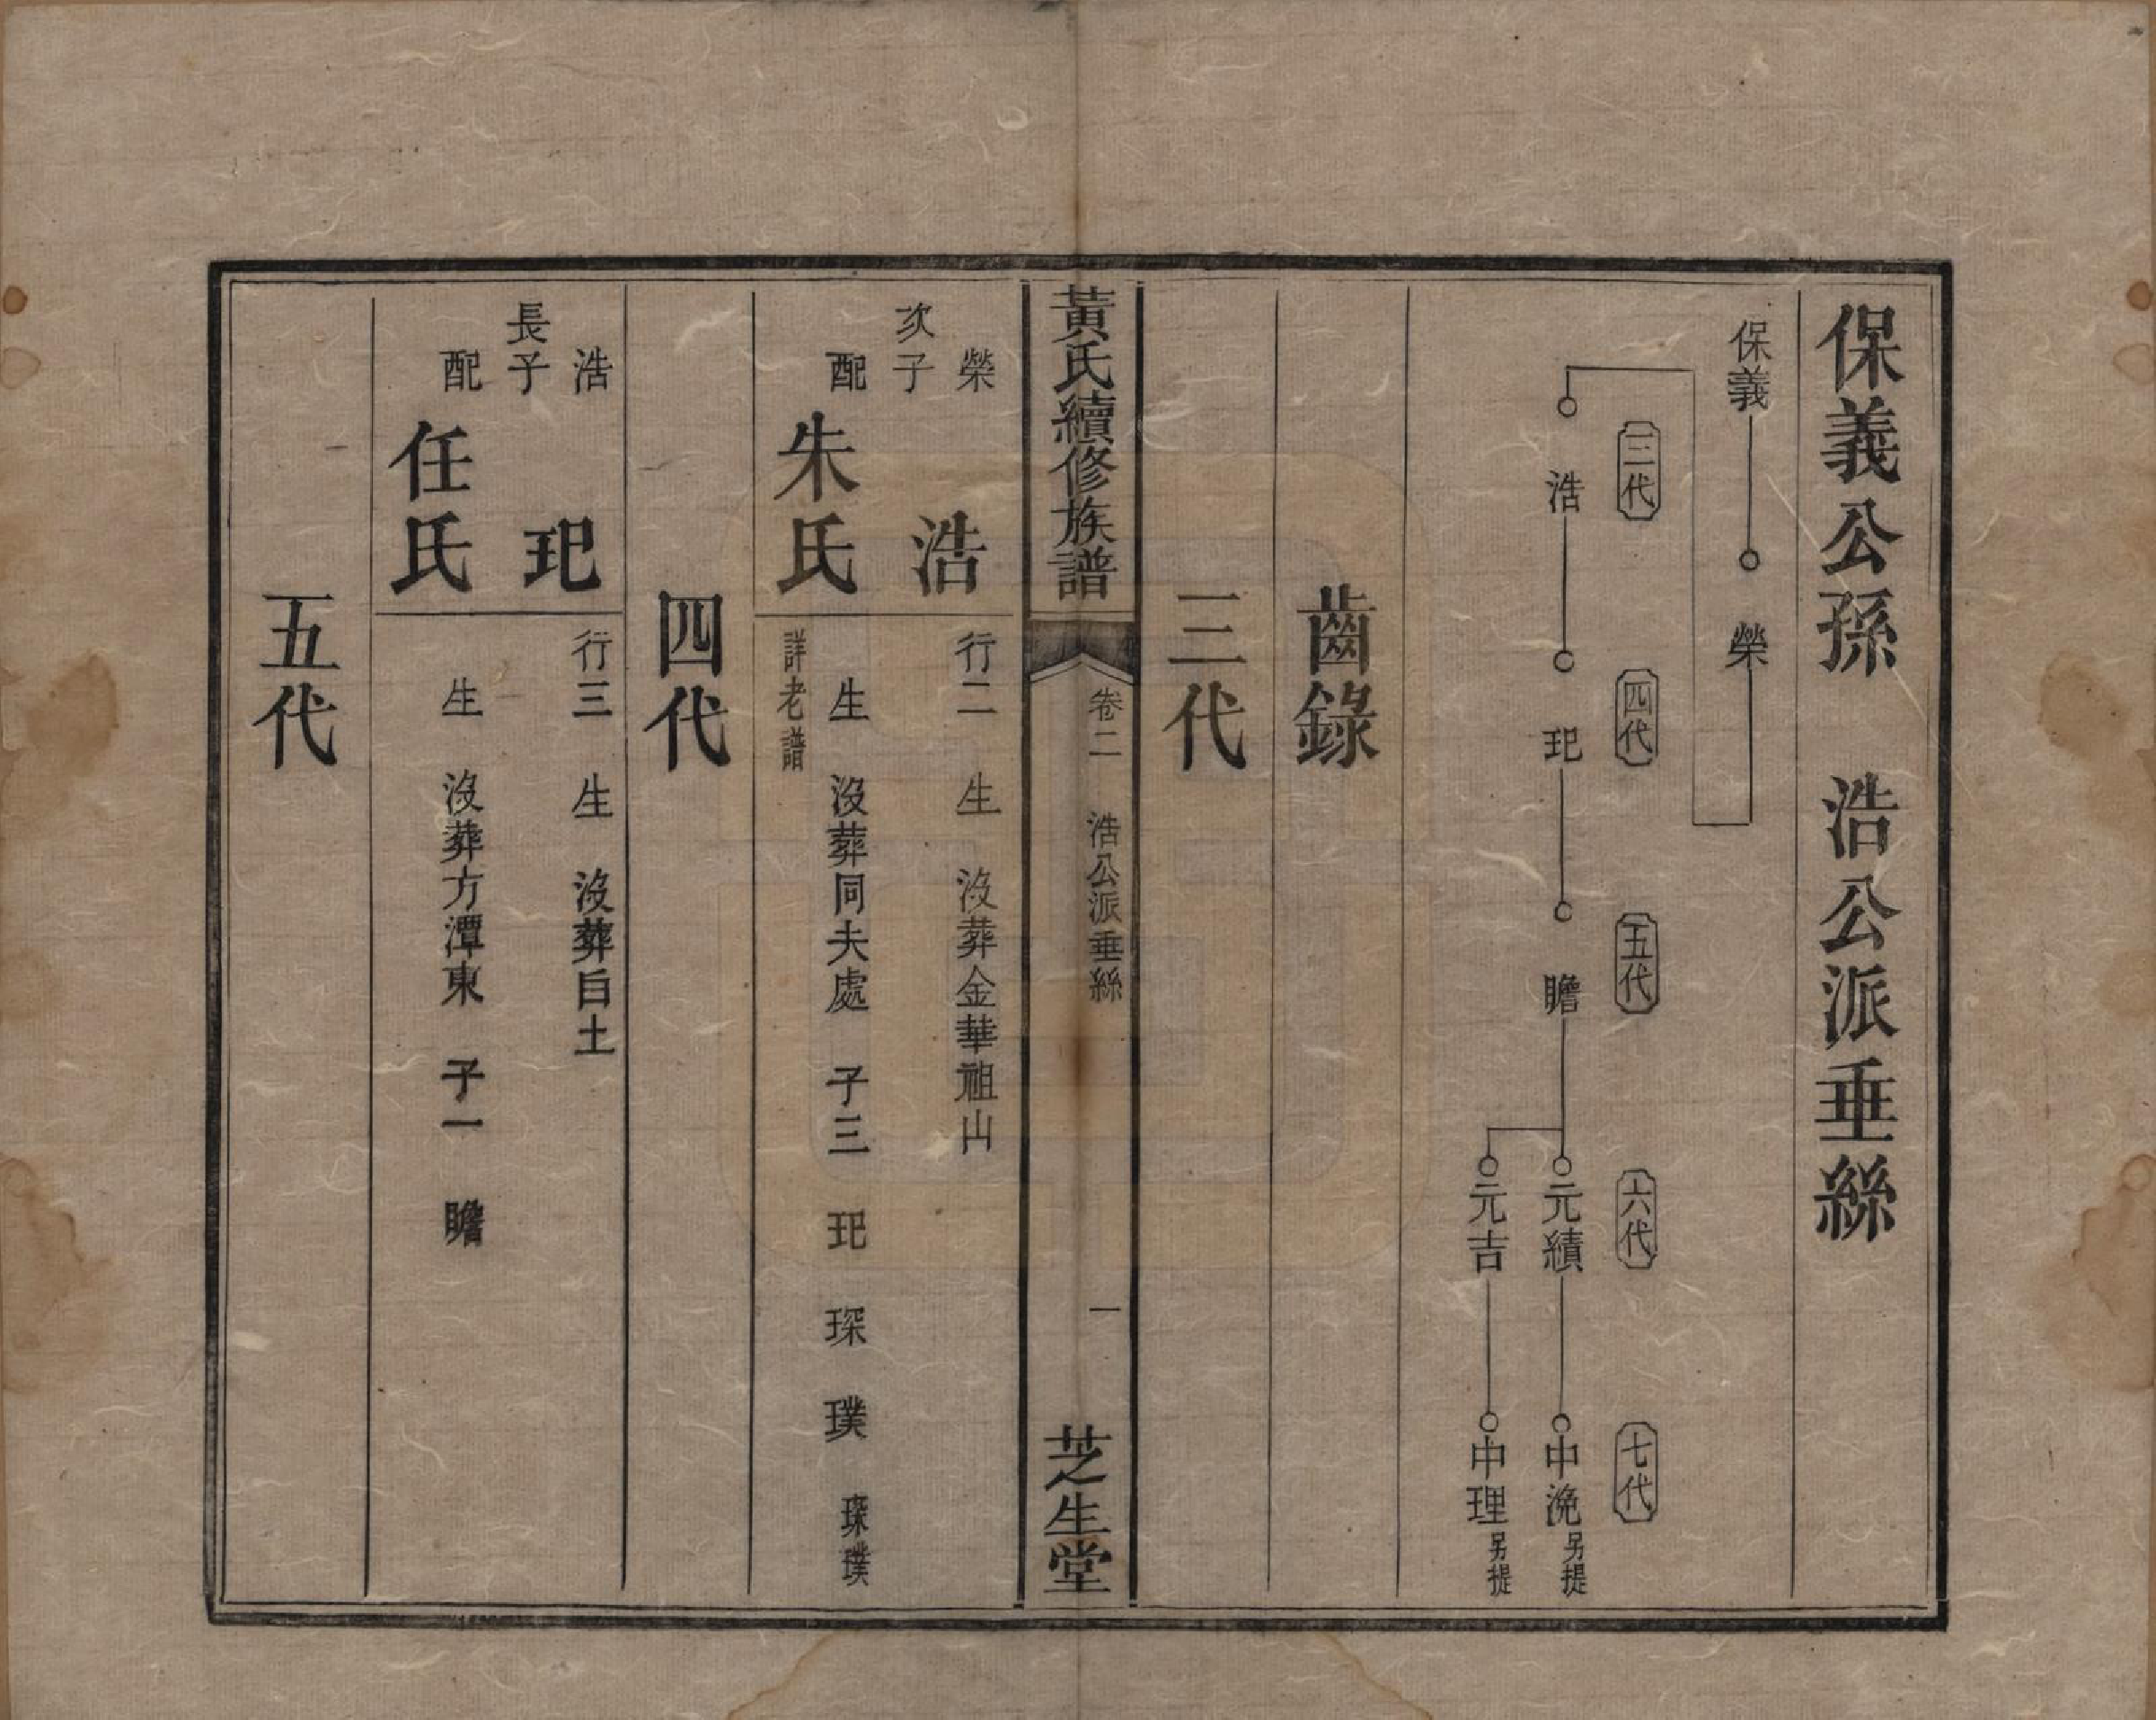 保義公孫　浩公派垂絲
保義　榮
三代　四代　五代　六代　七代
浩　玘　瞻　元績　中浼另提
元吉　中理另提
齒錄
三代
黃氏續修族譜　卷二　浩公派垂絲　一　芝生堂
榮
次子　浩　行二　生　沒葬金華祖山
配　朱氏　生　沒葬同夫處　子三　玘　琛　璞　琛璞
詳老譜
四代
浩
長子　玘　行三　生　沒葬自土
配　任氏　生　沒葬方潭東　子一　瞻
五代